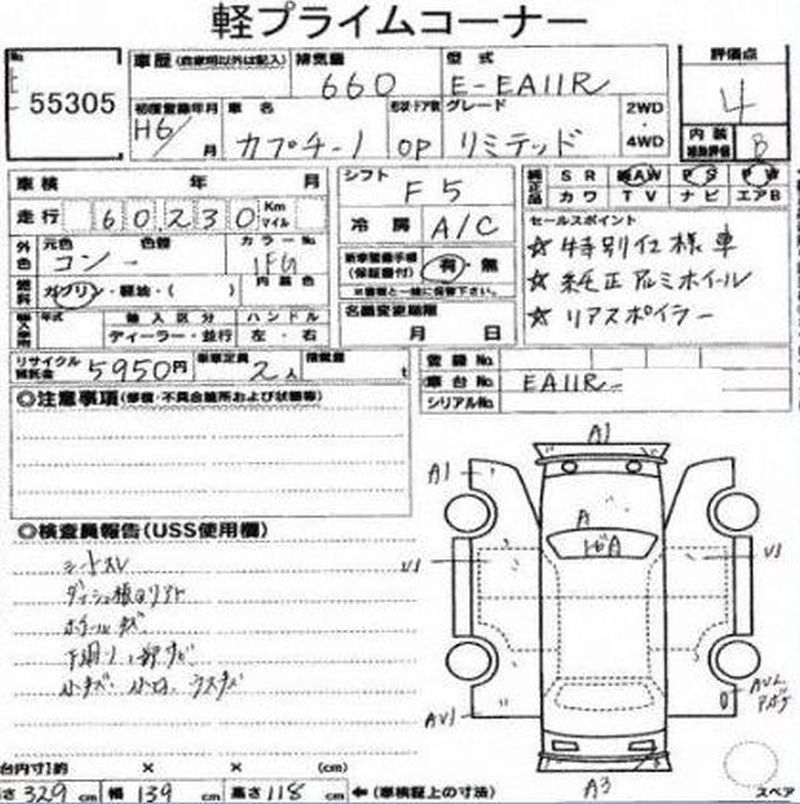 軽プライムコーナー
No. 55305
車歴 (自家用以外は記入) 排気量 660 型式 E-EA11R
初度登録年月 H6/ 月 車名 カプチーノ 形状・ドア数 OP グレード リミテッド 2WD・4WD
評価点 4
内装 補助評価 B
車検 年 月
走行 60,230 Km マイル
シフト F5
冷房 A/C
純正品 SR AW PS PW
カワ TV ナビ エアB
外色 元色 コン 色替 カラーNo. 1FG
燃料 ガソリン・軽油・( ) 内装色
新車整備手帳 (保証書付) 有・無
※書類と一緒に保管下さい。
セールスポイント
☆ 特別仕様車
☆ 純正アルミホイール
☆ リアスポイラー
年式 輸入区分 ハンドル
ディーラー・並行 左・右
名義変更期限
月 日
リサイクル預託金 5950円 乗車定員 2人 積載量 t
登録No.
車台No. EA11R-
シリアルNo.
◎注意事項(修復・不具合箇所および状態等)
◎検査員報告(USS使用欄)
シートスレ
ホイールキズ
A1
A1
A
U1
U1
AU1
A3
台内寸]約 × × (cm)
さ 329 cm 幅 139 cm 高さ 118 cm ←(車検証上の寸法)
スペア